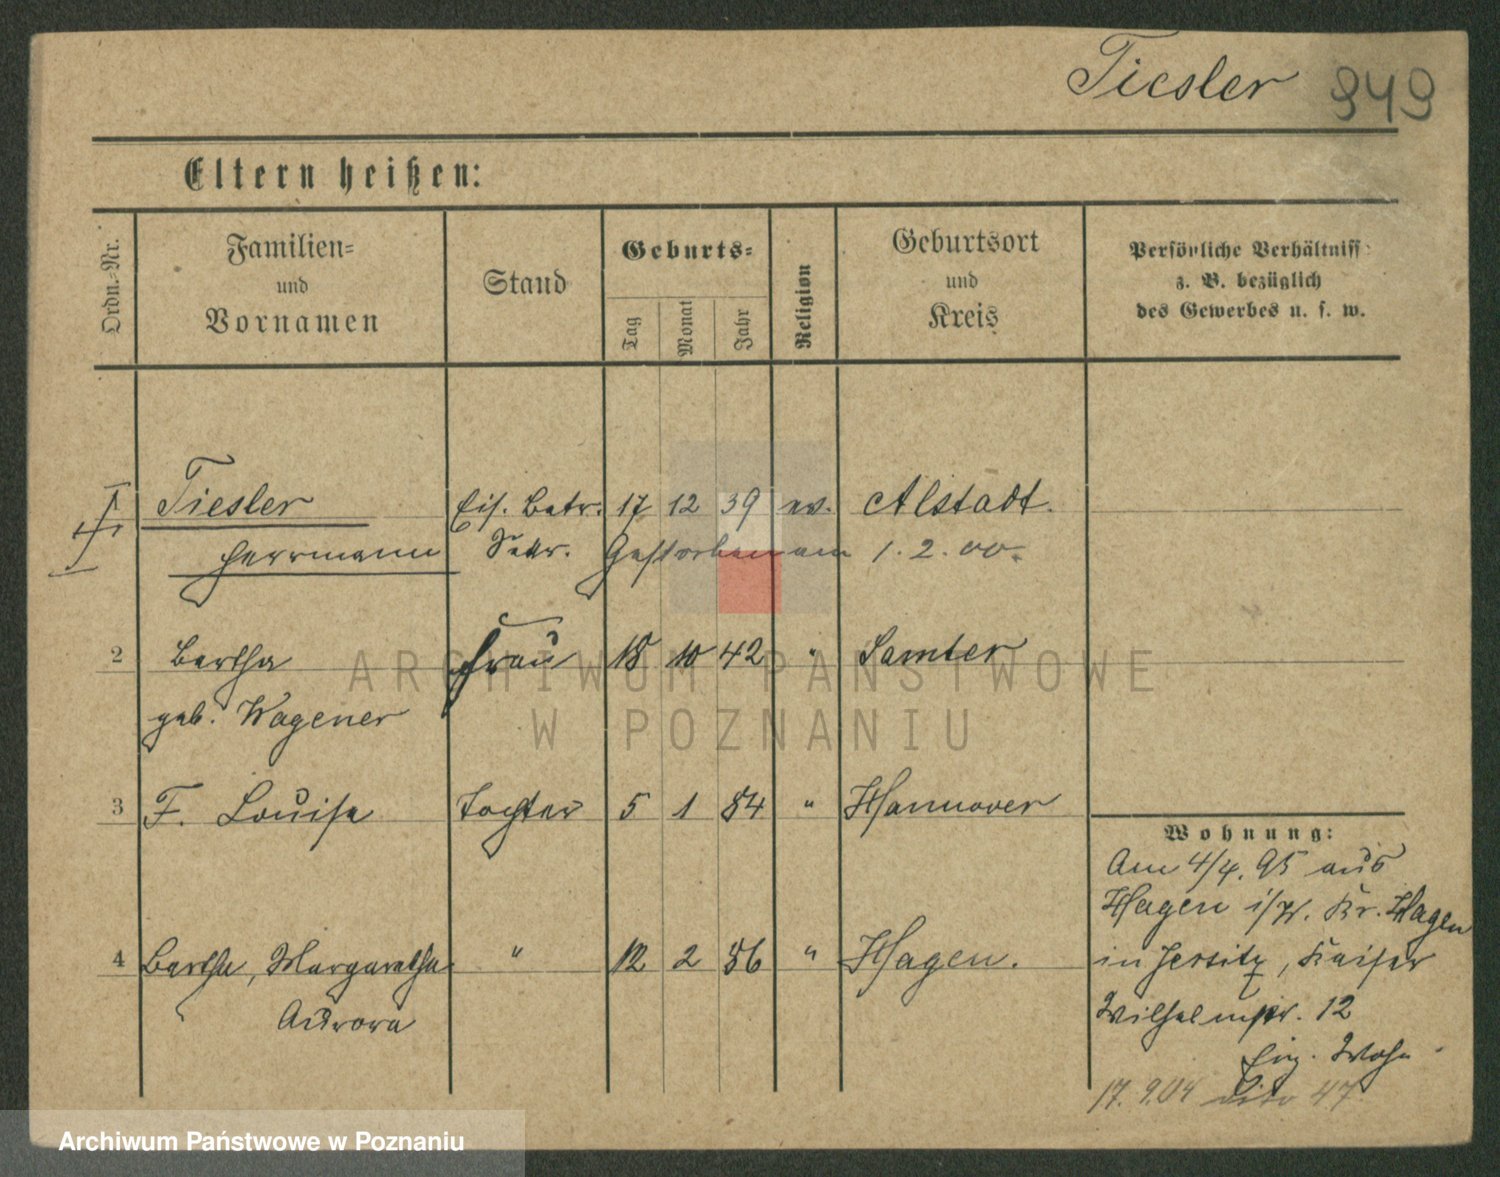 Tiesler 949
Eltern heißen:
Ordn.-Nr.
Familien-
und
Vornamen
Stand
Geburts-
Tag
Monat
Jahr
Religion
Geburtsort
und
Kreis
Persönliche Verhältniss
z. B. bezüglich
des Gewerbes u. s. w.
Tiesler Eis. Betr. 17 12 39 ev. Alstadt.
Herrmann Sekr. Gestorben am 1. 2. 00.
2 Bertha Frau 18 10 42 " Samter
geb. Wagener
3 F. Louise Tochter 5 1 84 " Hannover
4 Bertha, Margaretha " 12 2 86 " Hagen.
Aurora
Wohnung:
Am 4/4. 95 aus
Hagen i/W. Kr. Hagen
in Jersitz, Kaiser
Wilhelmstr. 12
Eig. Wohn
17. 9.04 dito 47.
ARCHIWUM PAŃSTWOWE
W POZNANIU
Archiwum Państwowe w Poznaniu